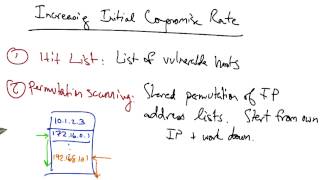 Increasing Initial Compromise Rate
① Hit List: List of vulnerable hosts
② Permutation scanning: Shared permutation of IP
address lists. Start from own
IP + work down.
10.1.2.3
172.16.0.1
⋮
192.168.10.1